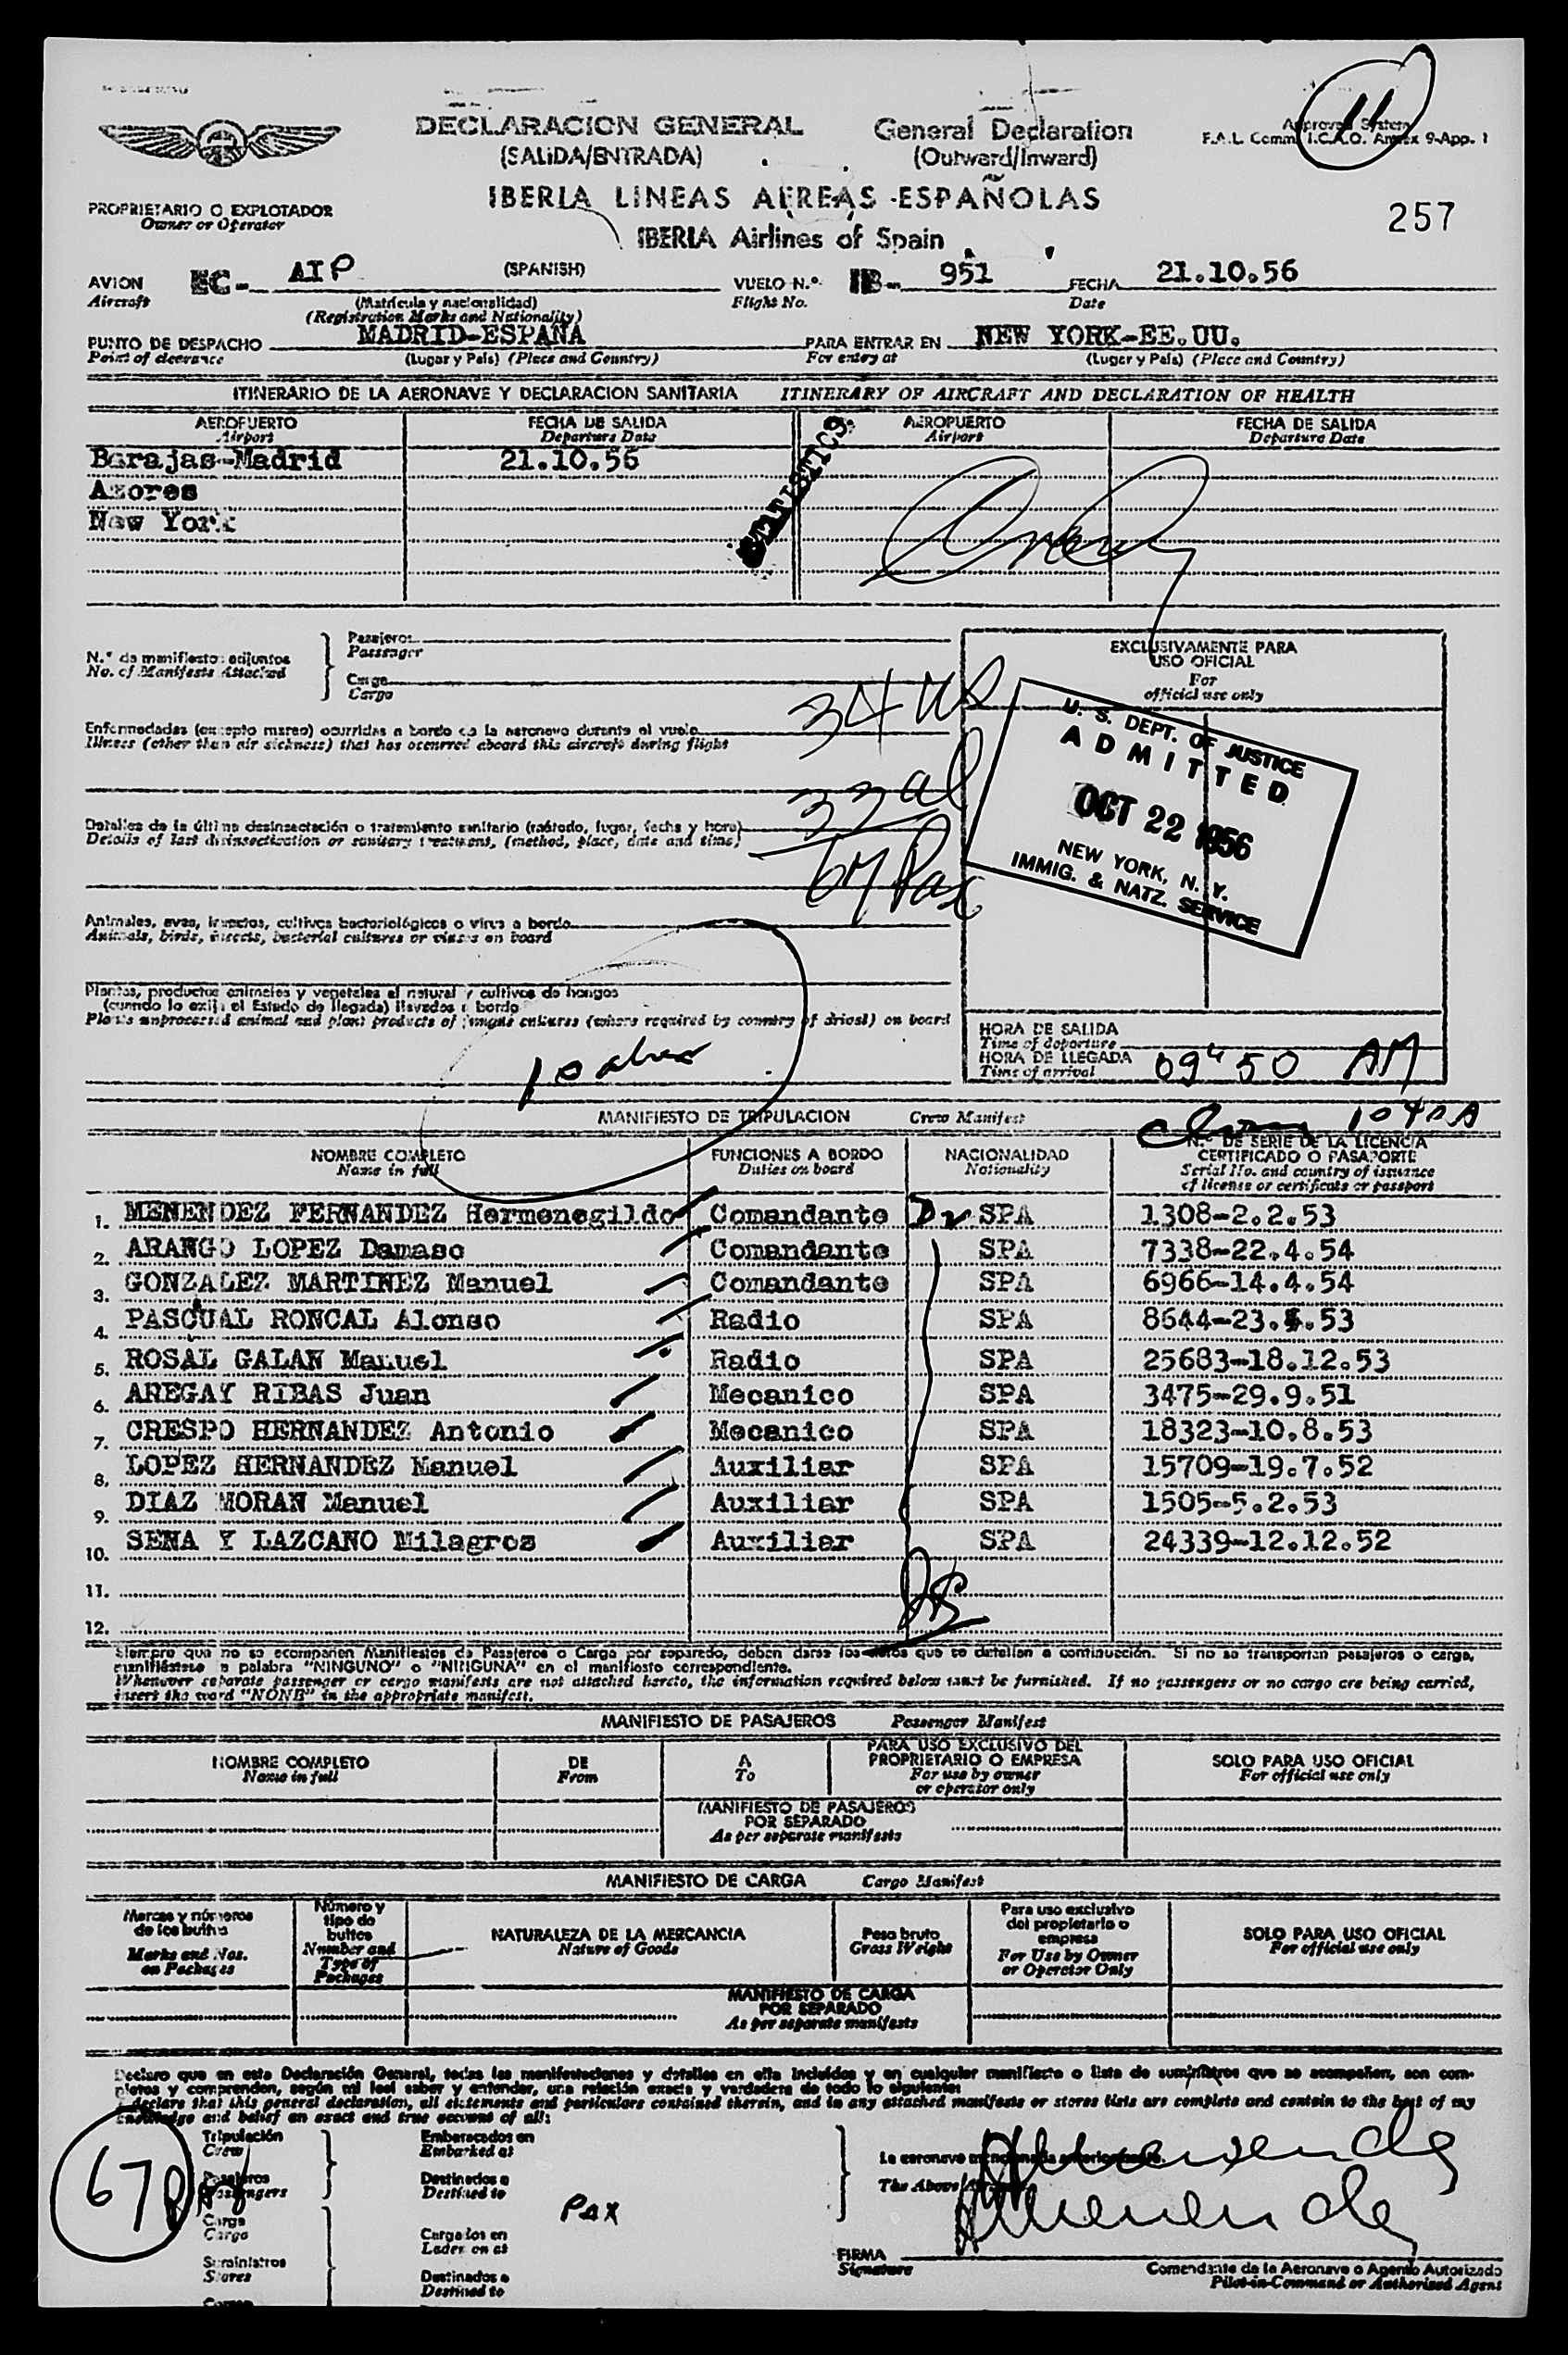 DECLARACION GENERAL General Declaration
(SALIDA/ENTRADA) (Outward/Inward)
Approved System
F.A.L. Comm. I.C.A.O. Annex 9-App. 1
11
IBERIA LINEAS AEREAS ESPAÑOLAS
IBERIA Airlines of Spain
257
PROPRIETARIO O EXPLOTADOR
Owner or Operator
AVION EC- AIP (SPANISH) VUELO N.º IB- 951 FECHA 21.10.56
Aircraft (Matrícula y nacionalidad) Flight No. Date
(Registration Marks and Nationality)
PUNTO DE DESPACHO MADRID-ESPAÑA PARA ENTRAR EN NEW YORK-EE.UU.
Point of clearance (Lugar y País) (Place and Country) For entry at (Lugar y País) (Place and Country)
ITINERARIO DE LA AERONAVE Y DECLARACION SANITARIA ITINERARY OF AIRCRAFT AND DECLARATION OF HEALTH
AEROPUERTO FECHA DE SALIDA AEROPUERTO FECHA DE SALIDA
Airport Departure Date Airport Departure Date
Barajas-Madrid 21.10.56
Azores
New York
STATISTICS
N.º de manifiestos adjuntos
No. of Manifests Attached
Pasajeros
Passenger
Carga
Cargo
Enfermedades (excepto mareo) ocurridas a bordo de la aeronave durante el vuelo
Illness (other than air sickness) that has ocurred aboard this aircraft during flight
34 us
33 al
67 Pax
Detalles de la última desinsectación o tratamiento sanitario (método, lugar, fecha y hora)
Details of last disinsectization or sanitary treatment, (method, place, date and time)
Animales, aves, insectos, cultivos bacteriológicos o virus a bordo
Animals, birds, insects, bacterial cultures or viuses on board
Plantas, productos animales y vegetales al natural y cultivos de hongos
(cuando lo exija el Estado de llegada) llevados a bordo
EXCLUSIVAMENTE PARA
USO OFICIAL
For
official use only
U. S. DEPT. OF JUSTICE
ADMITTED
OCT 22 1956
NEW YORK, N. Y.
IMMIG. & NATZ. SERVICE
HORA DE SALIDA
Time of departure
HORA DE LLEGADA 09 50 AM
Time of arrival
MANIFIESTO DE TRIPULACION Crew Manifest
NOMBRE COMPLETO FUNCIONES A BORDO NACIONALIDAD N.º DE SERIE DE LA LICENCIA
Name in full Duties on board Nationality CERTIFICADO O PASAPORTE
Serial No. and country of issuance
of license or certificate or passport
1. MENENDEZ FERNANDEZ Hermenegildo Comandante SPA 1308-2.2.53
2. ARANGO LOPEZ Damaso Comandante SPA 7338-22.4.54
3. GONZALEZ MARTINEZ Manuel Comandante SPA 6966-14.4.54
4. PASCUAL RONCAL Alonso Radio SPA 8644-23.5.53
5. ROSAL GALAN Manuel Radio SPA 25683-18.12.53
6. AREGAY RIBAS Juan Mecanico SPA 3475-29.9.51
7. CRESPO HERNANDEZ Antonio Mecanico SPA 18323-10.8.53
8. LOPEZ HERNANDEZ Manuel Auxiliar SPA 15709-19.7.52
9. DIAZ MORAN Manuel Auxiliar SPA 1505-5.2.53
10. SENA Y LAZCANO Milagros Auxiliar SPA 24339-12.12.52
11.
12.
Siempre que no se acompañen Manifiestos de Pasajeros o Carga por separado, deben darse los datos que se detallan a continuación. Si no se transportan pasajeros o carga,
manifiéstese la palabra "NINGUNO" o "NINGUNA" en el manifiesto correspondiente.
Whenever separate passenger or cargo manifests are not attached hereto, the information required below must be furnished. If no passengers or no cargo are being carried,
insert the word "NONE" in the appropriate manifest.
MANIFIESTO DE PASAJEROS Passenger Manifest
NOMBRE COMPLETO DE A PARA USO EXCLUSIVO DEL SOLO PARA USO OFICIAL
Name in full From To PROPRIETARIO O EMPRESA For official use only
For use by owner
or operator only
MANIFIESTO DE PASAJEROS
POR SEPARADO
As per separate manifests
MANIFIESTO DE CARGA Cargo Manifest
Marcas y números
de los bultos
Marks and Nos.
on Packages
Número y
tipo de
bultos
Number and
Type of
Packages
NATURALEZA DE LA MERCANCIA
Nature of Goods
Peso bruto
Gross Weight
Para uso exclusivo
del propietario o
empresa
For Use by Owner
or Operator Only
SOLO PARA USO OFICIAL
For official use only
MANIFIESTO DE CARGA
POR SEPARADO
As per separate manifests
Declaro que en esta Declaración General, todas las manifestaciones y detalles en ella incluídos y en cualquier manifiesto o lista de suministros que se acompañen, son com-
pletos y comprenden, según mi leal saber y entender, una relación exacta y verdadera de todo lo siguiente:
I declare that this general declaration, all statements and particulars contained therein, and in any attached manifests or stores lists are complete and contain to the best of my
knowledge and belief an exact and true account of all:
Tripulación Embarcados en
Crew Embarked at
Pasajeros Destinados a
Passengers Destined to
67 Pax
Carga Cargados en
Cargo Laden on at
Suministros Destinados a
Stores Destined to
La aeronave mencionada anteriormente
The Above
FIRMA
Signature
Comandante de la Aeronave o Agente Autorizado
Pilot-in-Command or Authorized Agent